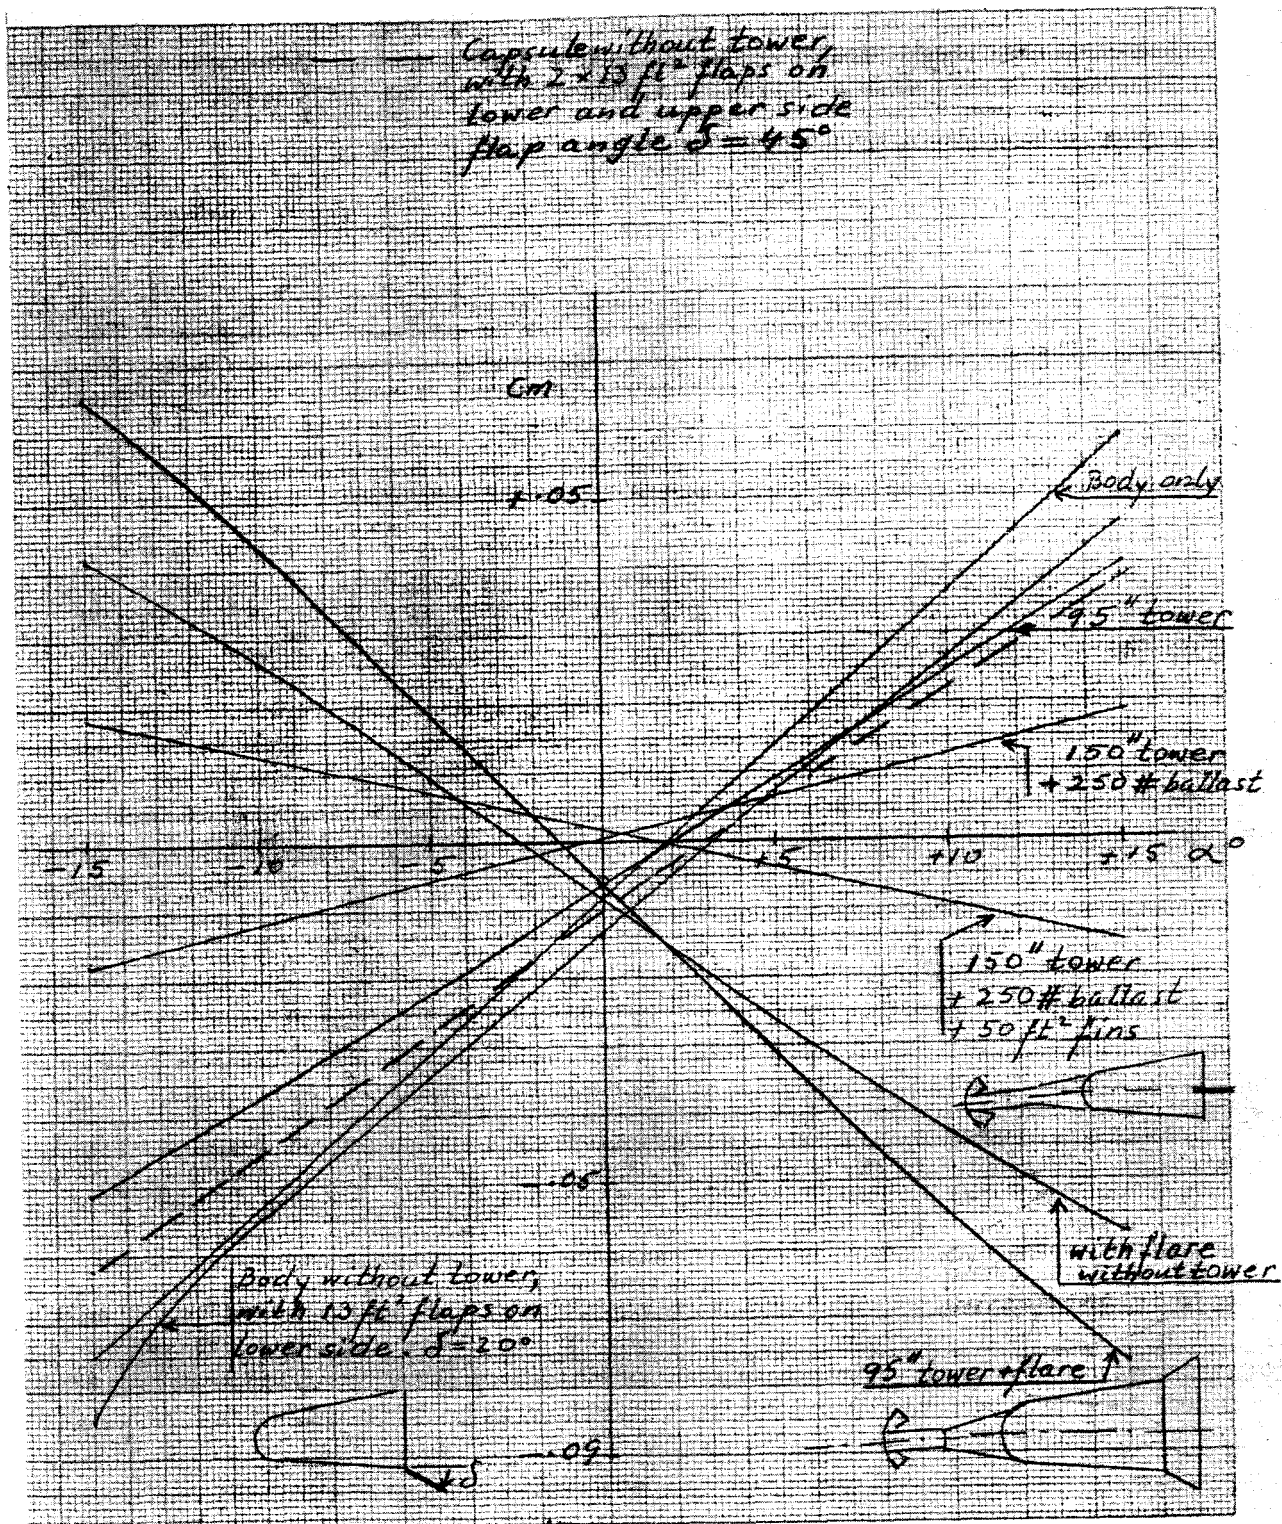 Capsule without tower,
with 2 x 13 ft² flaps on
lower and upper side
flap angle δ = 45°
Cm
+.05
Body only
95" tower
150" tower
+ 250 # ballast
-15
-10
-5
+5
+10
+15
α°
150" tower
+ 250 # ballast
+ 50 ft² fins
-.05
with flare
without tower
Body without tower,
with 13 ft² flaps on
lower side. δ=20°
95" tower+flare
-.09
δ